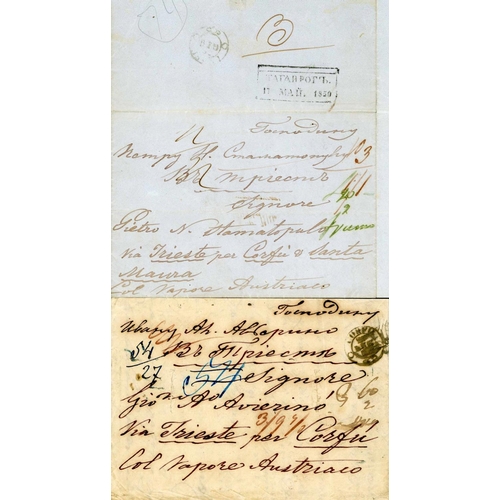 24
3
ТАГАНРОГЪ.
17 МАЙ. 1859
Господину
Петру Н. Стаматопуло
Въ Тріестъ
Signore
Pietro N. Stamatopulo
Via Trieste per Corfù & Santa
Maura
Col Vapore Austriaco
Господину
Ивану Ап. Авьерино
54
Въ Тріестъ
27
Signore
Avierinò
Via Trieste per Corfù
Col Vapore Austriaco